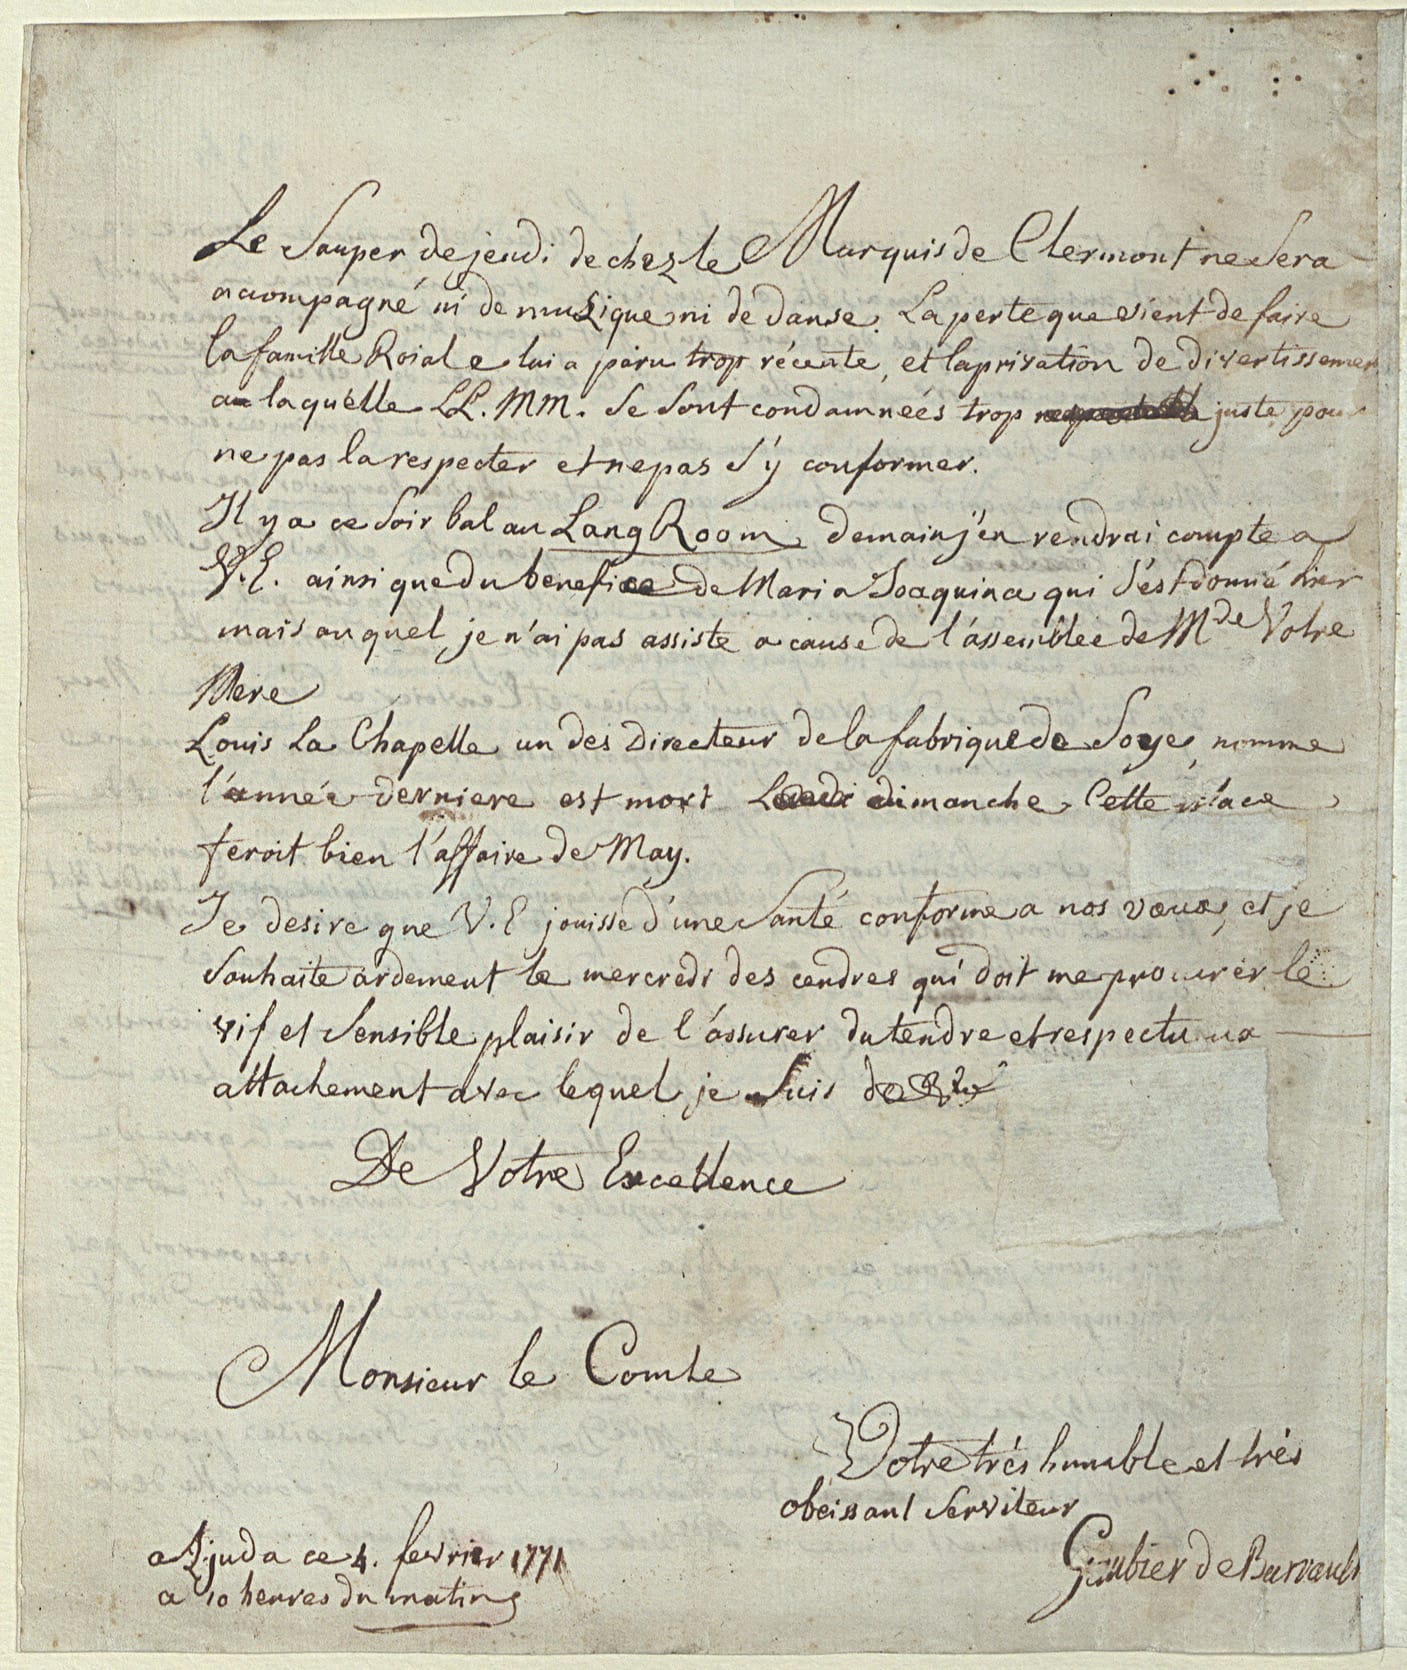 Le Souper de jeudi de chez le Marquis de Clermont ne Sera
acompagné ni de muzique ni de danse. La perte que vient de faire
la famille Roiale lui a paru trop récente, et la privation de divertissemen
a laquélle LL. MM. Se Sont condamnéés trop juste pour
ne pas la respecter et ne pas S'y conformer.
Il y a ce Soir bal au Lang Room, demain j'en rendrai compte a
V.E. ainsi que du benefice de Maria Joaquina qui S'est donné hier
mais auquel je n'ai pas assiste a cause de l'assemblée de Mde Votre
Mere
Louis La Chapelle un des Directeur de la fabrique de Soye, nomme
l'année derniere est mort dimanche. Cette place
feroit bien l'affaire de May.
Je desire que V.E jouisse d'une Santé conforme a nos vœux, et je
Souhaite ardement le mercredi des cendres qui doit me procurer le
vif et Sensible plaisir de l'assurer du tendre et respectueux
attachement avec lequel je Suis
De Votre Excellence
Monsieur le Comte
Votre trés humble et trés
obeissant Serviteur
Gaubier de Barrault
a Ajuda ce 4. fevrier 1771
a 10 heures du matin